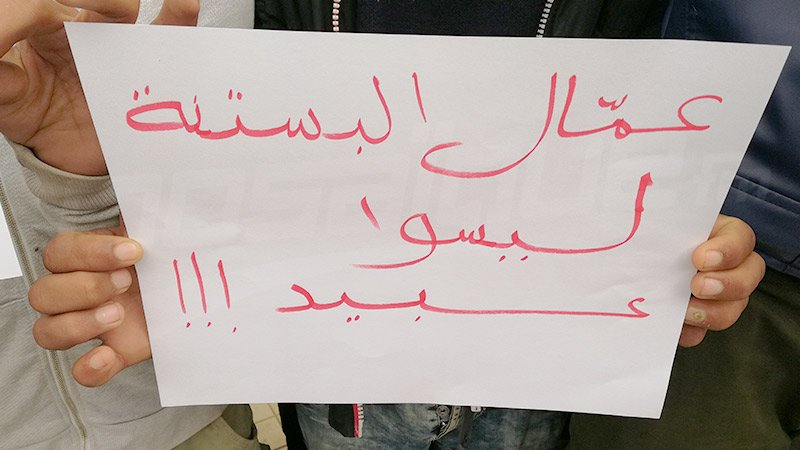 عمّال البستنة
ليسوا
عبيد !!!